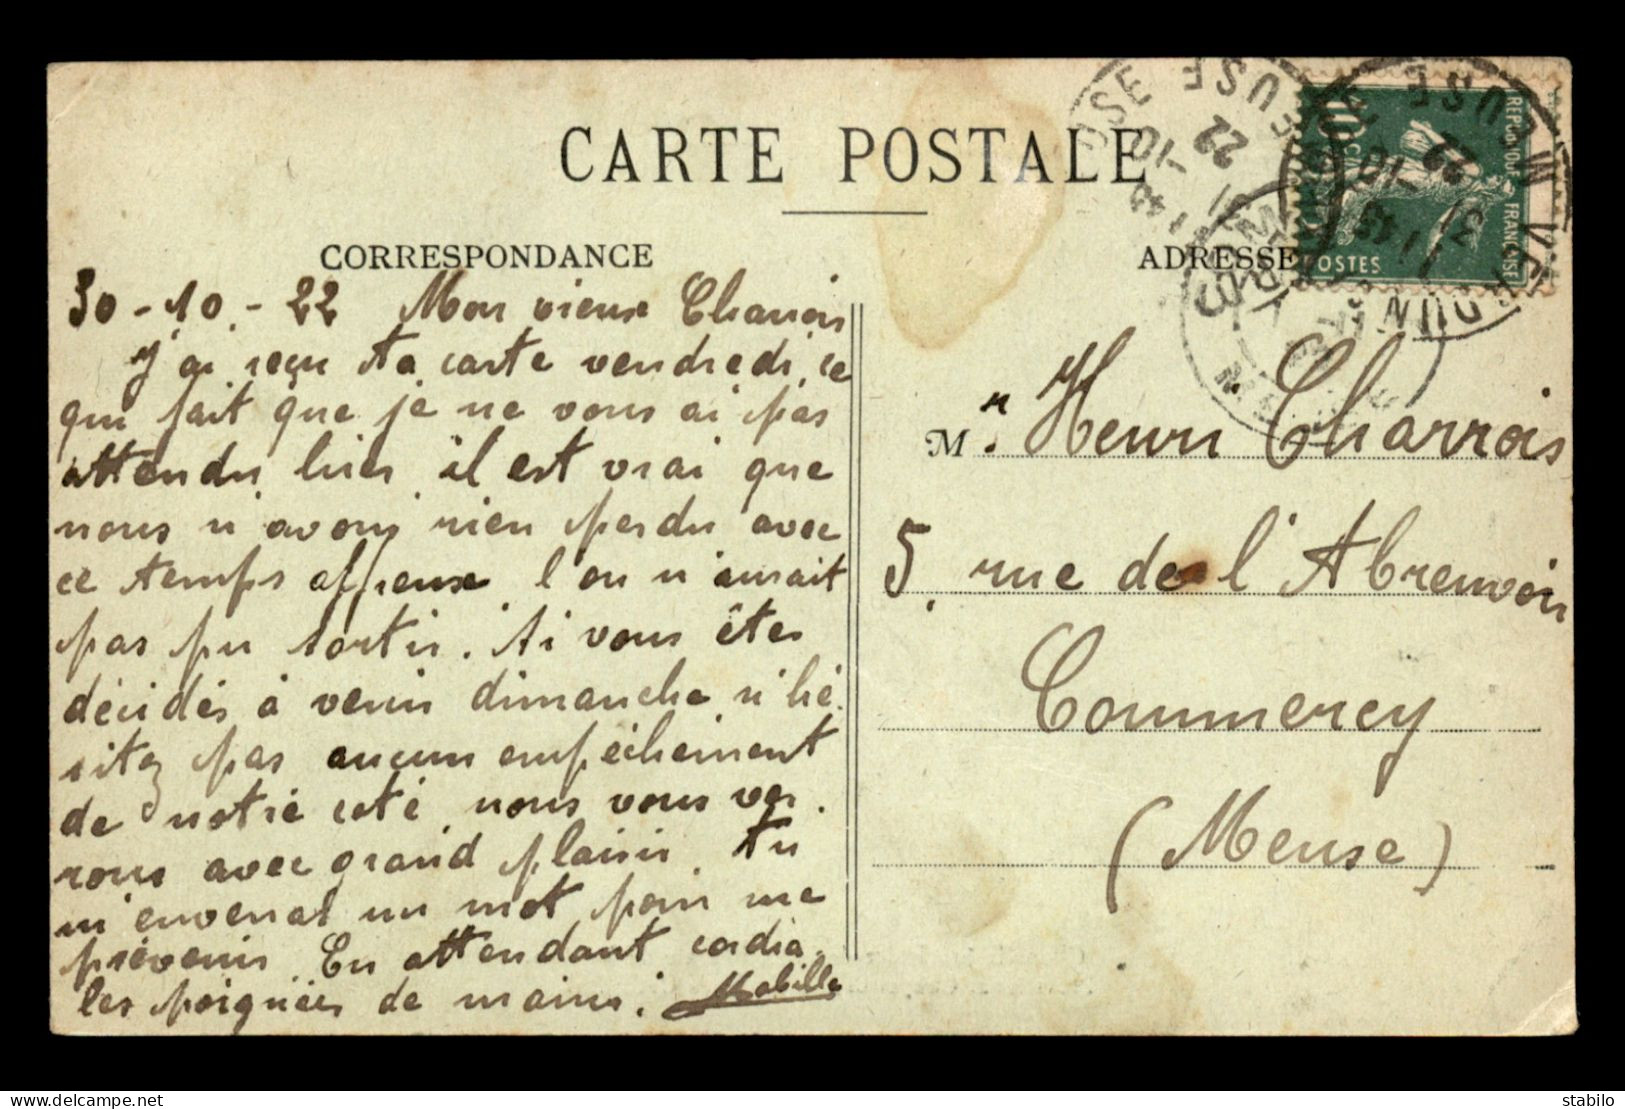 CARTE POSTALE
CORRESPONDANCE
30-10-22 Mon vieux Charrois
J'ai reçu ta carte vendredi, ce
qui fait que je ne vous ai pas
attendu hier, il est vrai que
nous n'avons rien perdu avec
ce temps affreux l'on n'aurait
pas pu sortir. Si vous êtes
décidés à venir dimanche n'hé-
sitez pas aucun empêchement
de notre coté nous vous ver-
rons avec grand plaisir. Tu
m'enverras un mot pour me
prévenir. En attendant cordia-
les poignées de mains.
Mabille
ADRESSE
Mr. Henri Charrois
5, rue de l'Abreuvoir
Commercy
(Meuse)
REPUBLIQUE FRANÇAISE
10c
POSTES
VERDUN
MEUSE
31-10
22
delcampe.net
stabilo